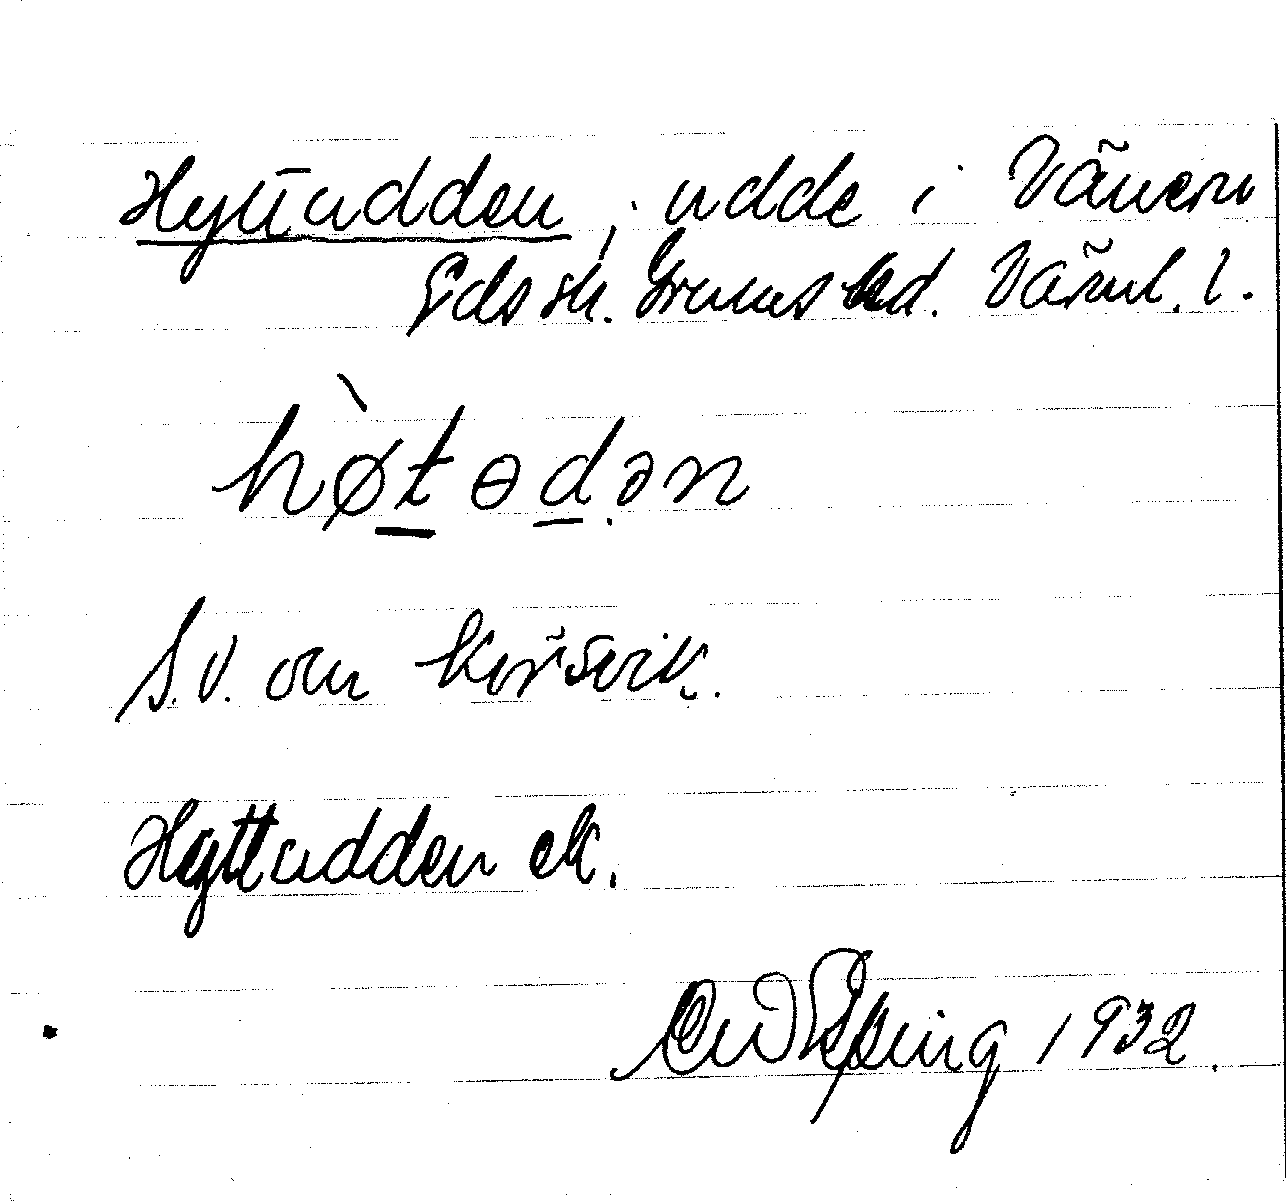 Hyttudden, udde i Vänern
Eds sk. Grums hd. Värml. l.
hø̀t̲ɵd̲.ən
S.V. om Korsvik.
Hyttudden ek.
1932.